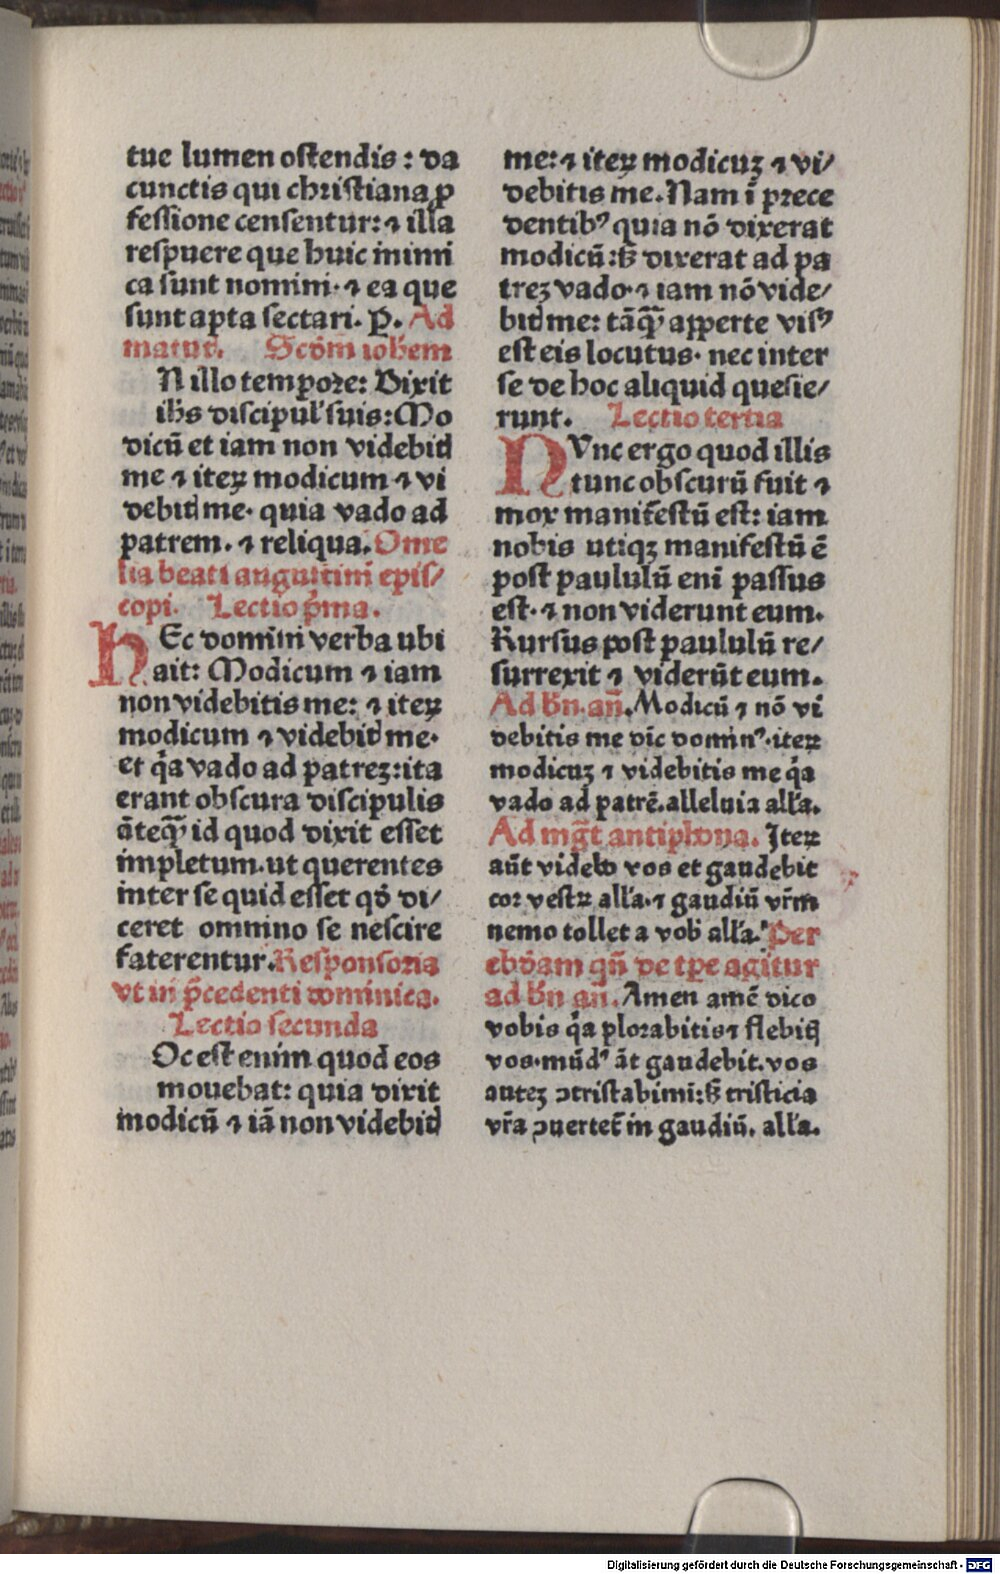 tue lumen ostendis : da
cunctis qui christiana ꝓ
fessione censentur: ⁊ illa
respuere que huic inimi
ca sunt nomini· ⁊ ea que
sunt apta sectari. P̲. Ad
matut̄. Scd̄m ioh̄em
N illo tempore: Dixit
ih̄s discipul' suis: Mo
dicū et iam non videbit
me ⁊ iteꝝ modicum ⁊ vi
debit me· quia vado ad
patrem. ⁊ reliqua. Ome
lia beati augustini epis/
copi. Lectio p̄ma.
HEc domini verba ubi
ait: Modicum ⁊ iam
non videbitis me: ⁊ iteꝝ
modicum ⁊ videbit me·
et q̄a vado ad patreꝫ: ita
erant obscura discipulis
āteꝙ̄ id quod dixit esset
impletum. ut querentes
inter se quid esset qd̄ di/
ceret omnino se nescire
faterentur. Responsoria
vt in p̄cedenti dominica.
Lectio secunda
Oc est enim quod eos
mouebat: quia dixit
modicū ⁊ iā non videbit
me: ⁊ iteꝝ modicuꝫ ⁊ vi/
debitis me. Nam ī prece
dentibꝰ quia nō dixerat
modicū: sꝫ dixerat ad pa
treꝫ vado· ⁊ iam nō vide/
bit me: tāꝙ̄ apperte visꝰ
est eis locutus· nec inter
se de hoc aliquid quesie/
runt. Lectio tertia
NVnc ergo quod illis
tunc obscurū fuit ⁊
mox manifestū est: iam
nobis utiqꝫ manifestū ē
post paululū eni passus
est· ⁊ non viderunt eum.
Rursus post paululū re/
surrexit ⁊ viderūt eum.
Ad bn̄. an̄. Modicū ⁊ nō vi
debitis me dic̄ dominꝰ· iteꝝ
modicuꝫ ⁊ videbitis me q̄a
vado ad patrē. alleluia all'a.
Ad mgt̄ antiphona. Iteꝝ
aūt videbo vos et gaudebit
cor vestꝝ all'a. ⁊ gaudiū vr̄m
nemo tollet a vob̄ all'a. Per
ebd̄am qn̄ de tp̄e agitur
ad bn̄ an̄. Amen amē dico
vobis q̄a plorabitis ⁊ flebit
vos· mūdꝰ āt gaudebit. vos
auteꝫ ꝯtristabimi: sꝫ tristicia
vr̄a ꝯuertet̄ in gaudiū. all'a.
Digitalisierung gefördert durch die Deutsche Forschungsgemeinschaft - DFG